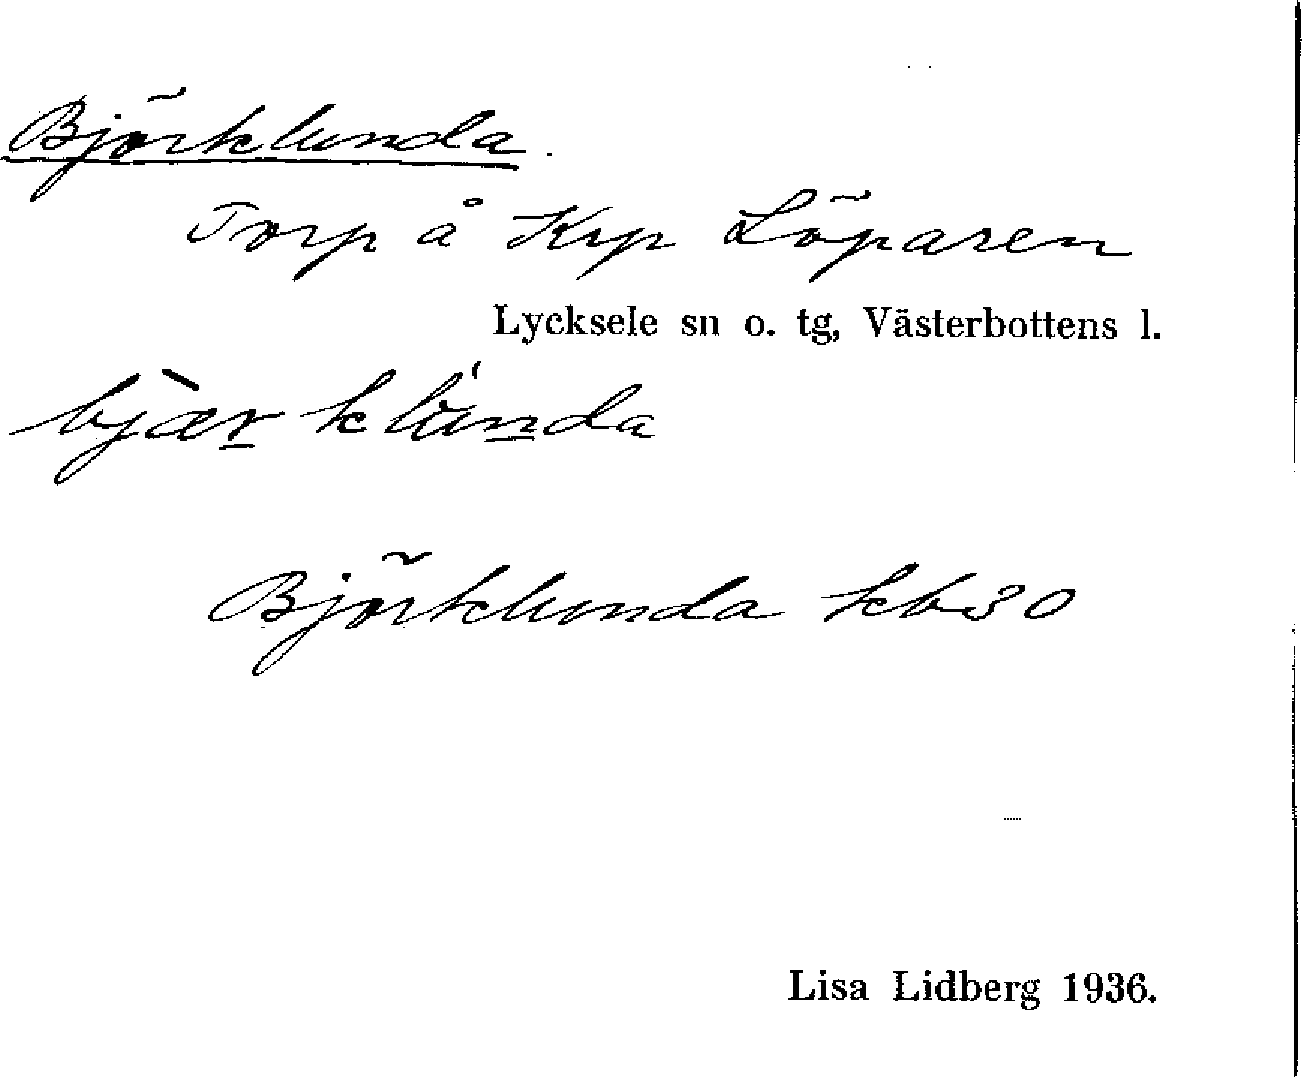 Björklunda.
Torp å Krp Löparen
Lycksele sn o. tg, Västerbottens l.
bjær klúnda
Björklunda kb30
Lisa Lidberg 1936.